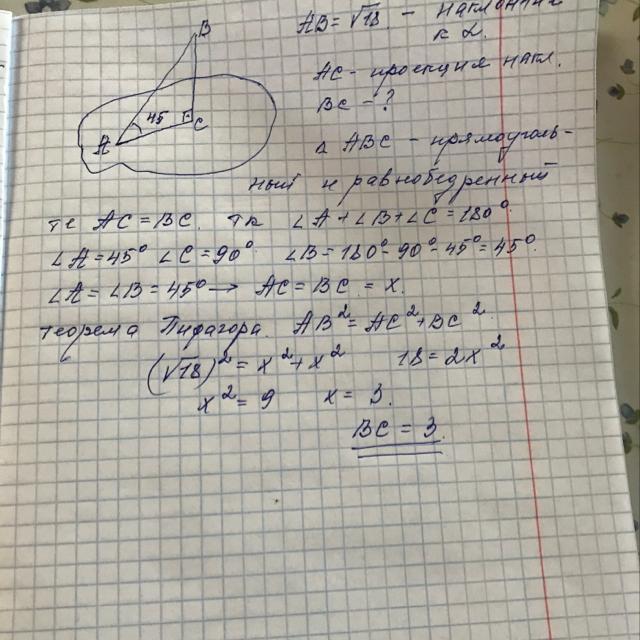 B
45
A
C
AB = √18 - наклонная
к α.
AC - проекция накл.
BC - ?
△ ABC - прямоуголь-
ный и равнобедренный
те AC = BC. тк ∠A + ∠B + ∠C = 180°
∠A = 45° ∠C = 90° ∠B = 180° - 90° - 45° = 45°.
∠A = ∠B = 45° → AC = BC = x.
теорема Пифагора. AB² = AC² + BC².
(√18)² = x² + x² 18 = 2x²
x² = 9 x = 3.
BC = 3.